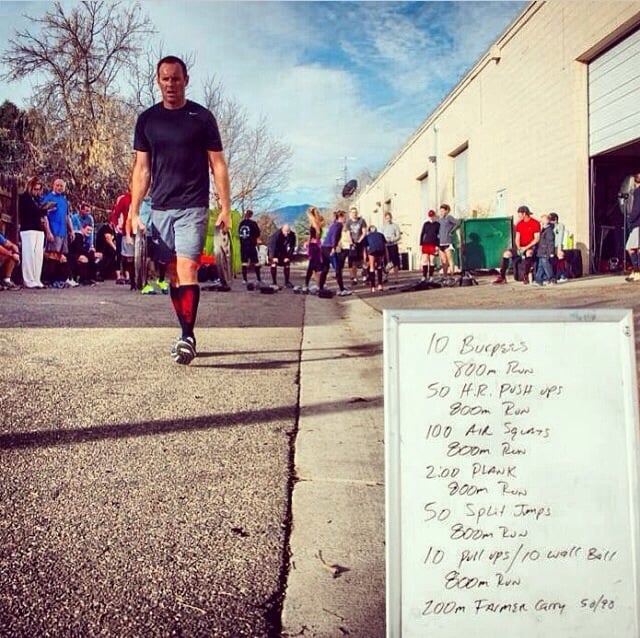 10 Burpees
800m Run
50 H.R. Push ups
800m Run
100 Air Squats
800m Run
2:00 Plank
800m Run
50 Split Jumps
800m Run
10 Pull ups/10 Wall Ball
800m Run
200m Farmer Carry 50/70